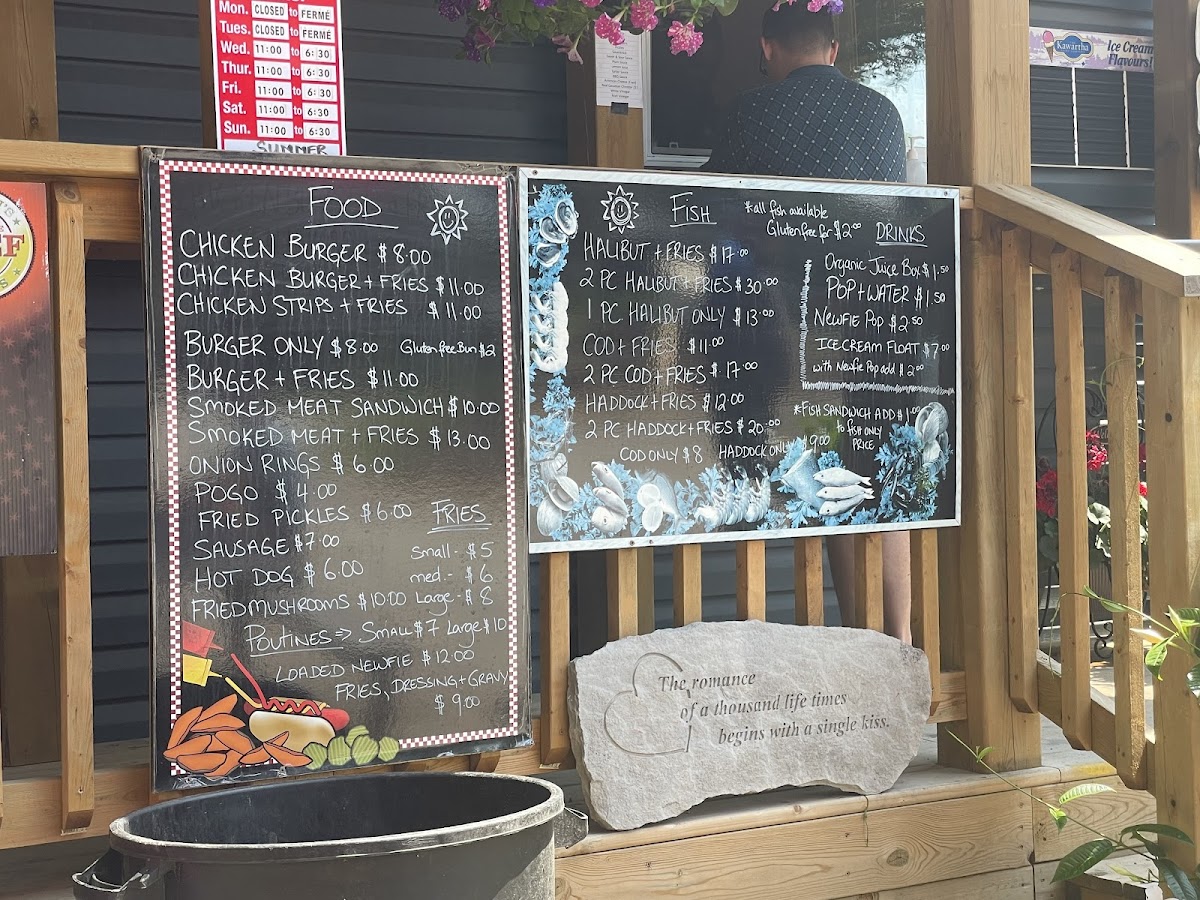 Mon. CLOSED to FERMÉ
Tues. CLOSED to FERMÉ
Wed. 11:00 to 6:30
Thur. 11:00 to 6:30
Fri. 11:00 to 6:30
Sat. 11:00 to 6:30
Sun. 11:00 to 6:30
SUMMER
Kawartha
Ice Cream
Flavours!
FOOD
CHICKEN BURGER $8.00
CHICKEN BURGER + FRIES $11.00
CHICKEN STRIPS + FRIES $11.00
BURGER ONLY $8.00 Gluten free Bun $2
BURGER + FRIES $11.00
SMOKED MEAT SANDWICH $10.00
SMOKED MEAT + FRIES $13.00
ONION RINGS $6.00
POGO $4.00
FRIED PICKLES $6.00
SAUSAGE $7.00
HOT DOG $6.00
FRIED MUSHROOMS $10.00
FRIES
Small - $5
med. - $6
Large - $8
POUTINES => Small $7 Large $10
LOADED NEWFIE $12.00
FRIES, DRESSING + GRAVY
$9.00
FISH
*all fish available
Gluten free for $2.00
HALIBUT + FRIES $17.00
2 PC HALIBUT + FRIES $30.00
1 PC HALIBUT ONLY $13.00
COD + FRIES $11.00
2 PC COD + FRIES $17.00
HADDOCK + FRIES $12.00
2 PC HADDOCK + FRIES $20.00
COD ONLY $8 HADDOCK ONLY $9.00
DRINKS
Organic Juice Box $1.50
POP + WATER $1.50
NEWFIE POP $2.50
ICE CREAM FLOAT $7.00
with Newfie Pop add $2.00
*FISH SANDWICH ADD $1.00
to FISH ONLY
PRICE
The romance
of a thousand life times
begins with a single kiss.